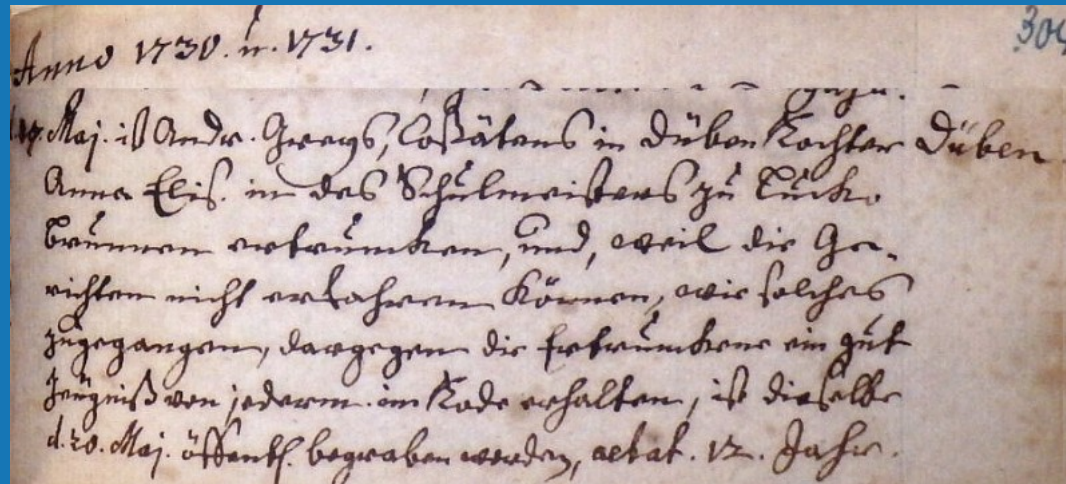 Anno 1730. u. 1731.
304
17. Maj. ist Andr. Coßätens in Düben Tochter Düben
Anna Elis. in des Schulmeisters zu Lucko
Brunnen ertruncken, und, weil die Ge-
richten nicht erfahren können, wie solches
zugegangen, dargegen die Ertrunckene ein gut
Zeugniß von jederm. im Tode erhalten, ist dieselbe
d. 20. Maj. öffentl. begraben worden, aetat. 12. Jahr.